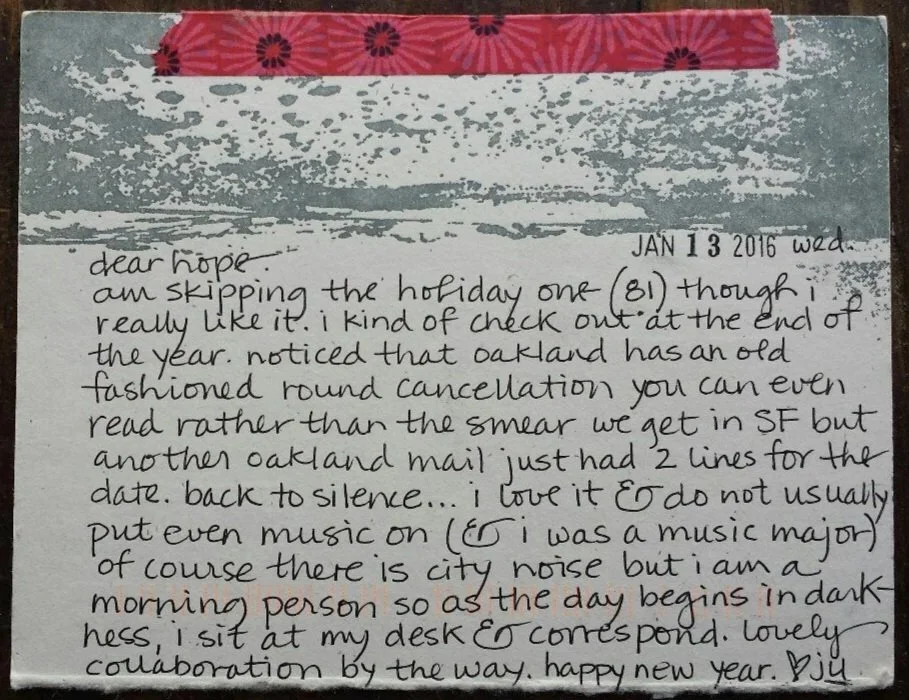 JAN 13 2016 wed.
dear hope.
am skipping the holiday one (81) though i
really like it. i kind of check out at the end of
the year. noticed that oakland has an old
fashioned round cancellation you can even
read rather than the smear we get in SF but
another oakland mail just had 2 lines for the
date. back to silence... i love it & do not usually
put even music on (& i was a music major)
of course there is city noise but i am a
morning person so as the day begins in dark-
ness, i sit at my desk & correspond. lovely
collaboration by the way. happy new year. ♡ju